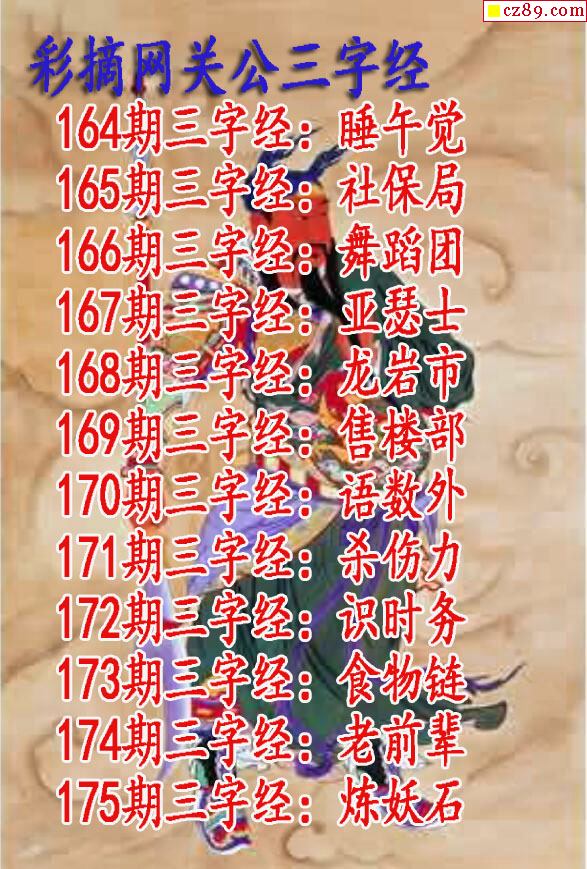 cz89.com
彩摘网关公三字经
164期三字经：睡午觉
165期三字经：社保局
166期三字经：舞蹈团
167期三字经：亚瑟士
168期三字经：龙岩市
169期三字经：售楼部
170期三字经：语数外
171期三字经：杀伤力
172期三字经：识时务
173期三字经：食物链
174期三字经：老前辈
175期三字经：炼妖石